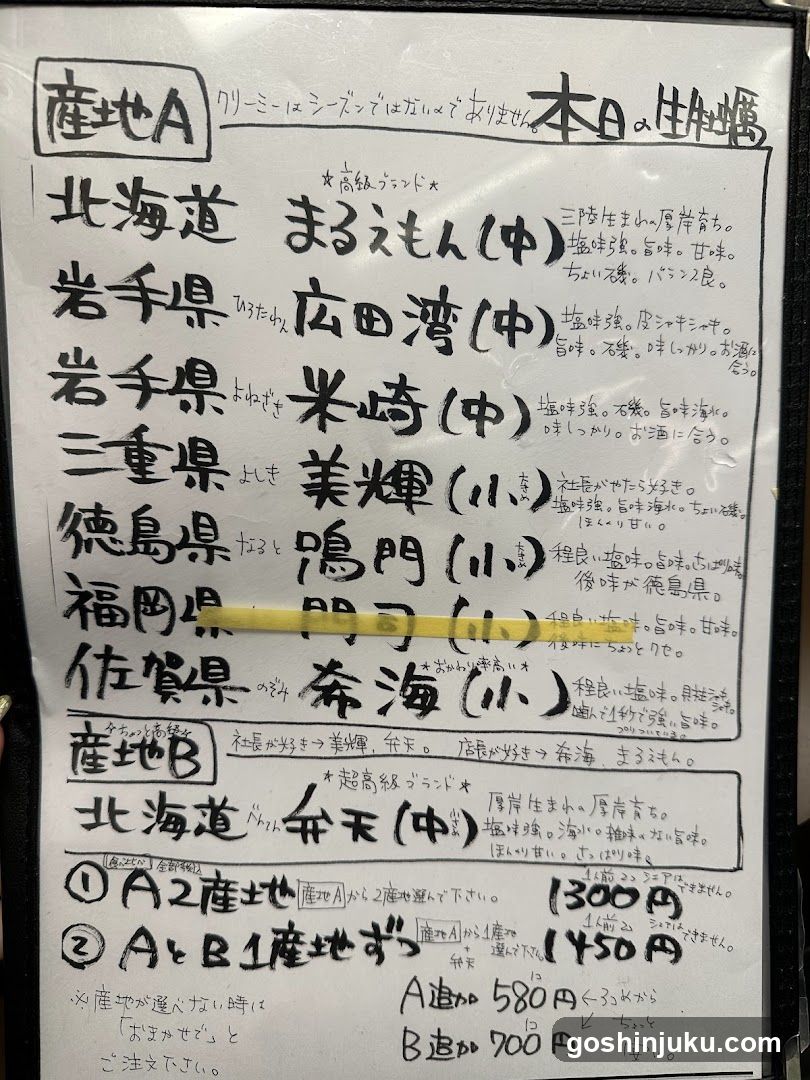 産地A クリーミーはシーズンではないのでありません。 本日の生牡蠣
北海道 ☆高級ブランド☆ まるえもん(中) 三陸生まれの厚岸育ち。
塩味強。旨味。甘味。
ちょい磯。バランス良。
岩手県 ひろたわん 広田湾(中) 塩味強。皮シャキシャキ。
旨味。磯。味しっかり。お酒に合う。
岩手県 よねざき 米崎(中) 塩味強。磯。旨味海水。
味しっかり。お酒に合う。
三重県 よしき 美輝(小)大きめ 社長がやたら好き。
塩味強。旨味海水。ちょい磯。
ほんのり甘い。
徳島県 なると 鳴門(小)大きめ 程良い塩味。旨味。さっぱり味。
後味が徳島県。
福岡県 門司(小) 程良い塩味。旨味。甘味。
後味にちょっとクセ。
佐賀県 のぞみ 希海(小) ☆おかわり率高い☆ 程良い塩味。貝柱シャキシャキ。
噛んで1秒で強い旨味。
産地B ☆ちょっと高級☆ 社長が好き→美輝、弁天。 店長が好き→希海、まるえもん。
北海道 べんてん ☆超高級ブランド☆ 弁天(中)小さめ 厚岸生まれの厚岸育ち。
塩味強。海水。雑味のない旨味。
ほんのり甘い。さっぱり味。
① A2産地 産地Aから2産地選んで下さい。 1300円 1人前2コ シェアはできません。
② AとB1産地ずつ 産地Aから1産地選んで下さい + 弁天 1450円 1人前2コ シェアはできません。
A追加 1コ 580円 ←3つめから
B追加 1コ 700円 ちょっと
※産地が選べない時は
「おまかせで」と
ご注文下さい。
goshinjuku.com